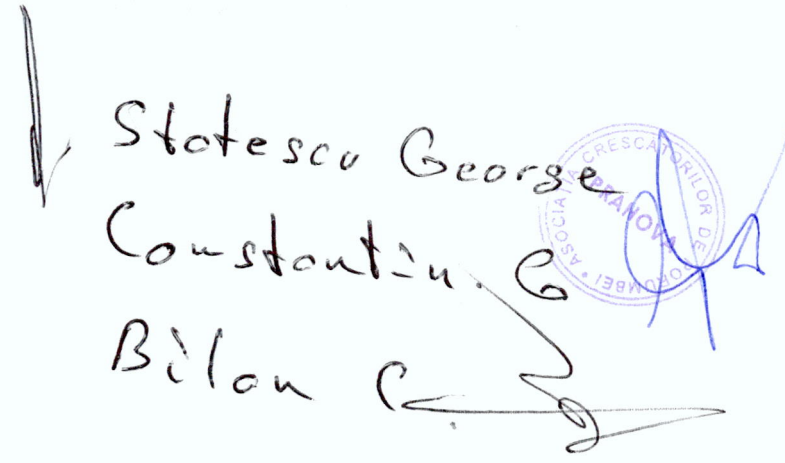 Statescu George
Constantin. G
Bilan C
ASOCIAȚIA CRESCATORILOR DE PORUMBEI *
PRAHOVA